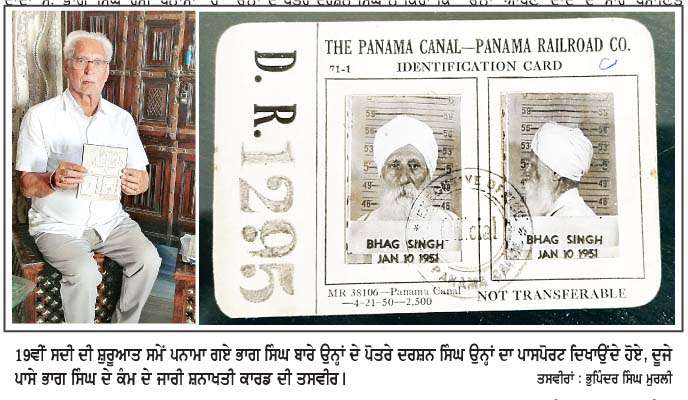 THE PANAMA CANAL—PANAMA RAILROAD CO.
71-1 IDENTIFICATION CARD
D. R. 1295
BHAG SINGH
JAN 10 1951
BHAG SINGH
JAN 10 1951
MR 38106—Panama Canal
—4-21-50—2,500
NOT TRANSFERABLE
19ਵੀਂ ਸਦੀ ਦੀ ਸ਼ੁਰੂਆਤ ਸਮੇਂ ਪਨਾਮਾ ਗਏ ਭਾਗ ਸਿੰਘ ਬਾਰੇ ਉਨ੍ਹਾਂ ਦੇ ਪੋਤਰੇ ਦਰਸ਼ਨ ਸਿੰਘ ਉਨ੍ਹਾਂ ਦਾ ਪਾਸਪੋਰਟ ਦਿਖਾਉਂਦੇ ਹੋਏ, ਦੂਜੇ
ਪਾਸੇ ਭਾਗ ਸਿੰਘ ਦੇ ਕੰਮ ਦੇ ਜਾਰੀ ਸ਼ਨਾਖਤੀ ਕਾਰਡ ਦੀ ਤਸਵੀਰ।
ਤਸਵੀਰਾਂ : ਭੁਪਿੰਦਰ ਸਿੰਘ ਮੁਰਲੀ